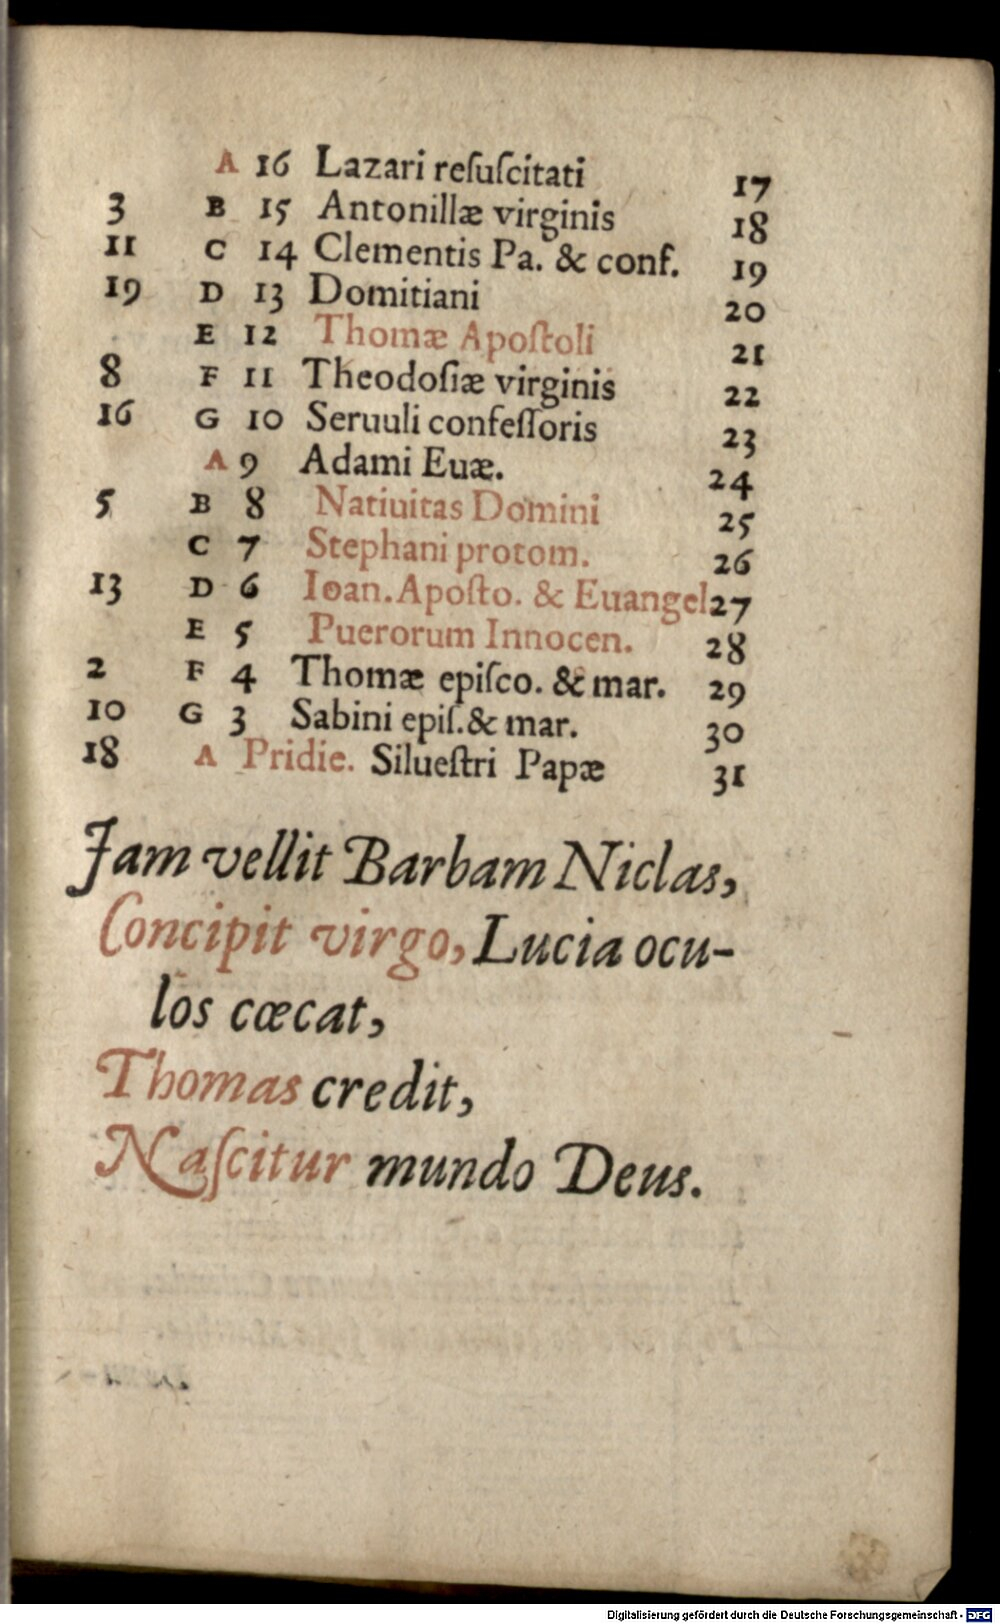 A 16 Lazari reſuſcitati 17
3 B 15 Antonillæ virginis 18
11 C 14 Clementis Pa. & conf. 19
19 D 13 Domitiani 20
E 12 Thomæ Apoſtoli 21
8 F 11 Theodoſiæ virginis 22
16 G 10 Seruuli confeſſoris 23
A 9 Adami Euæ. 24
5 B 8 Natiuitas Domini 25
C 7 Stephani protom. 26
13 D 6 Ioan. Apoſto. & Euangel 27
E 5 Puerorum Innocen. 28
2 F 4 Thomæ epiſco. & mar. 29
10 G 3 Sabini epiſ. & mar. 30
18 A Pridie. Silueſtri Papæ 31
Jam vellit Barbam Niclas,
Concipit virgo, Lucia ocu-
los cœcat,
Thomas credit,
Naſcitur mundo Deus.
Digitalisierung gefördert durch die Deutsche Forschungsgemeinschaft - DFG